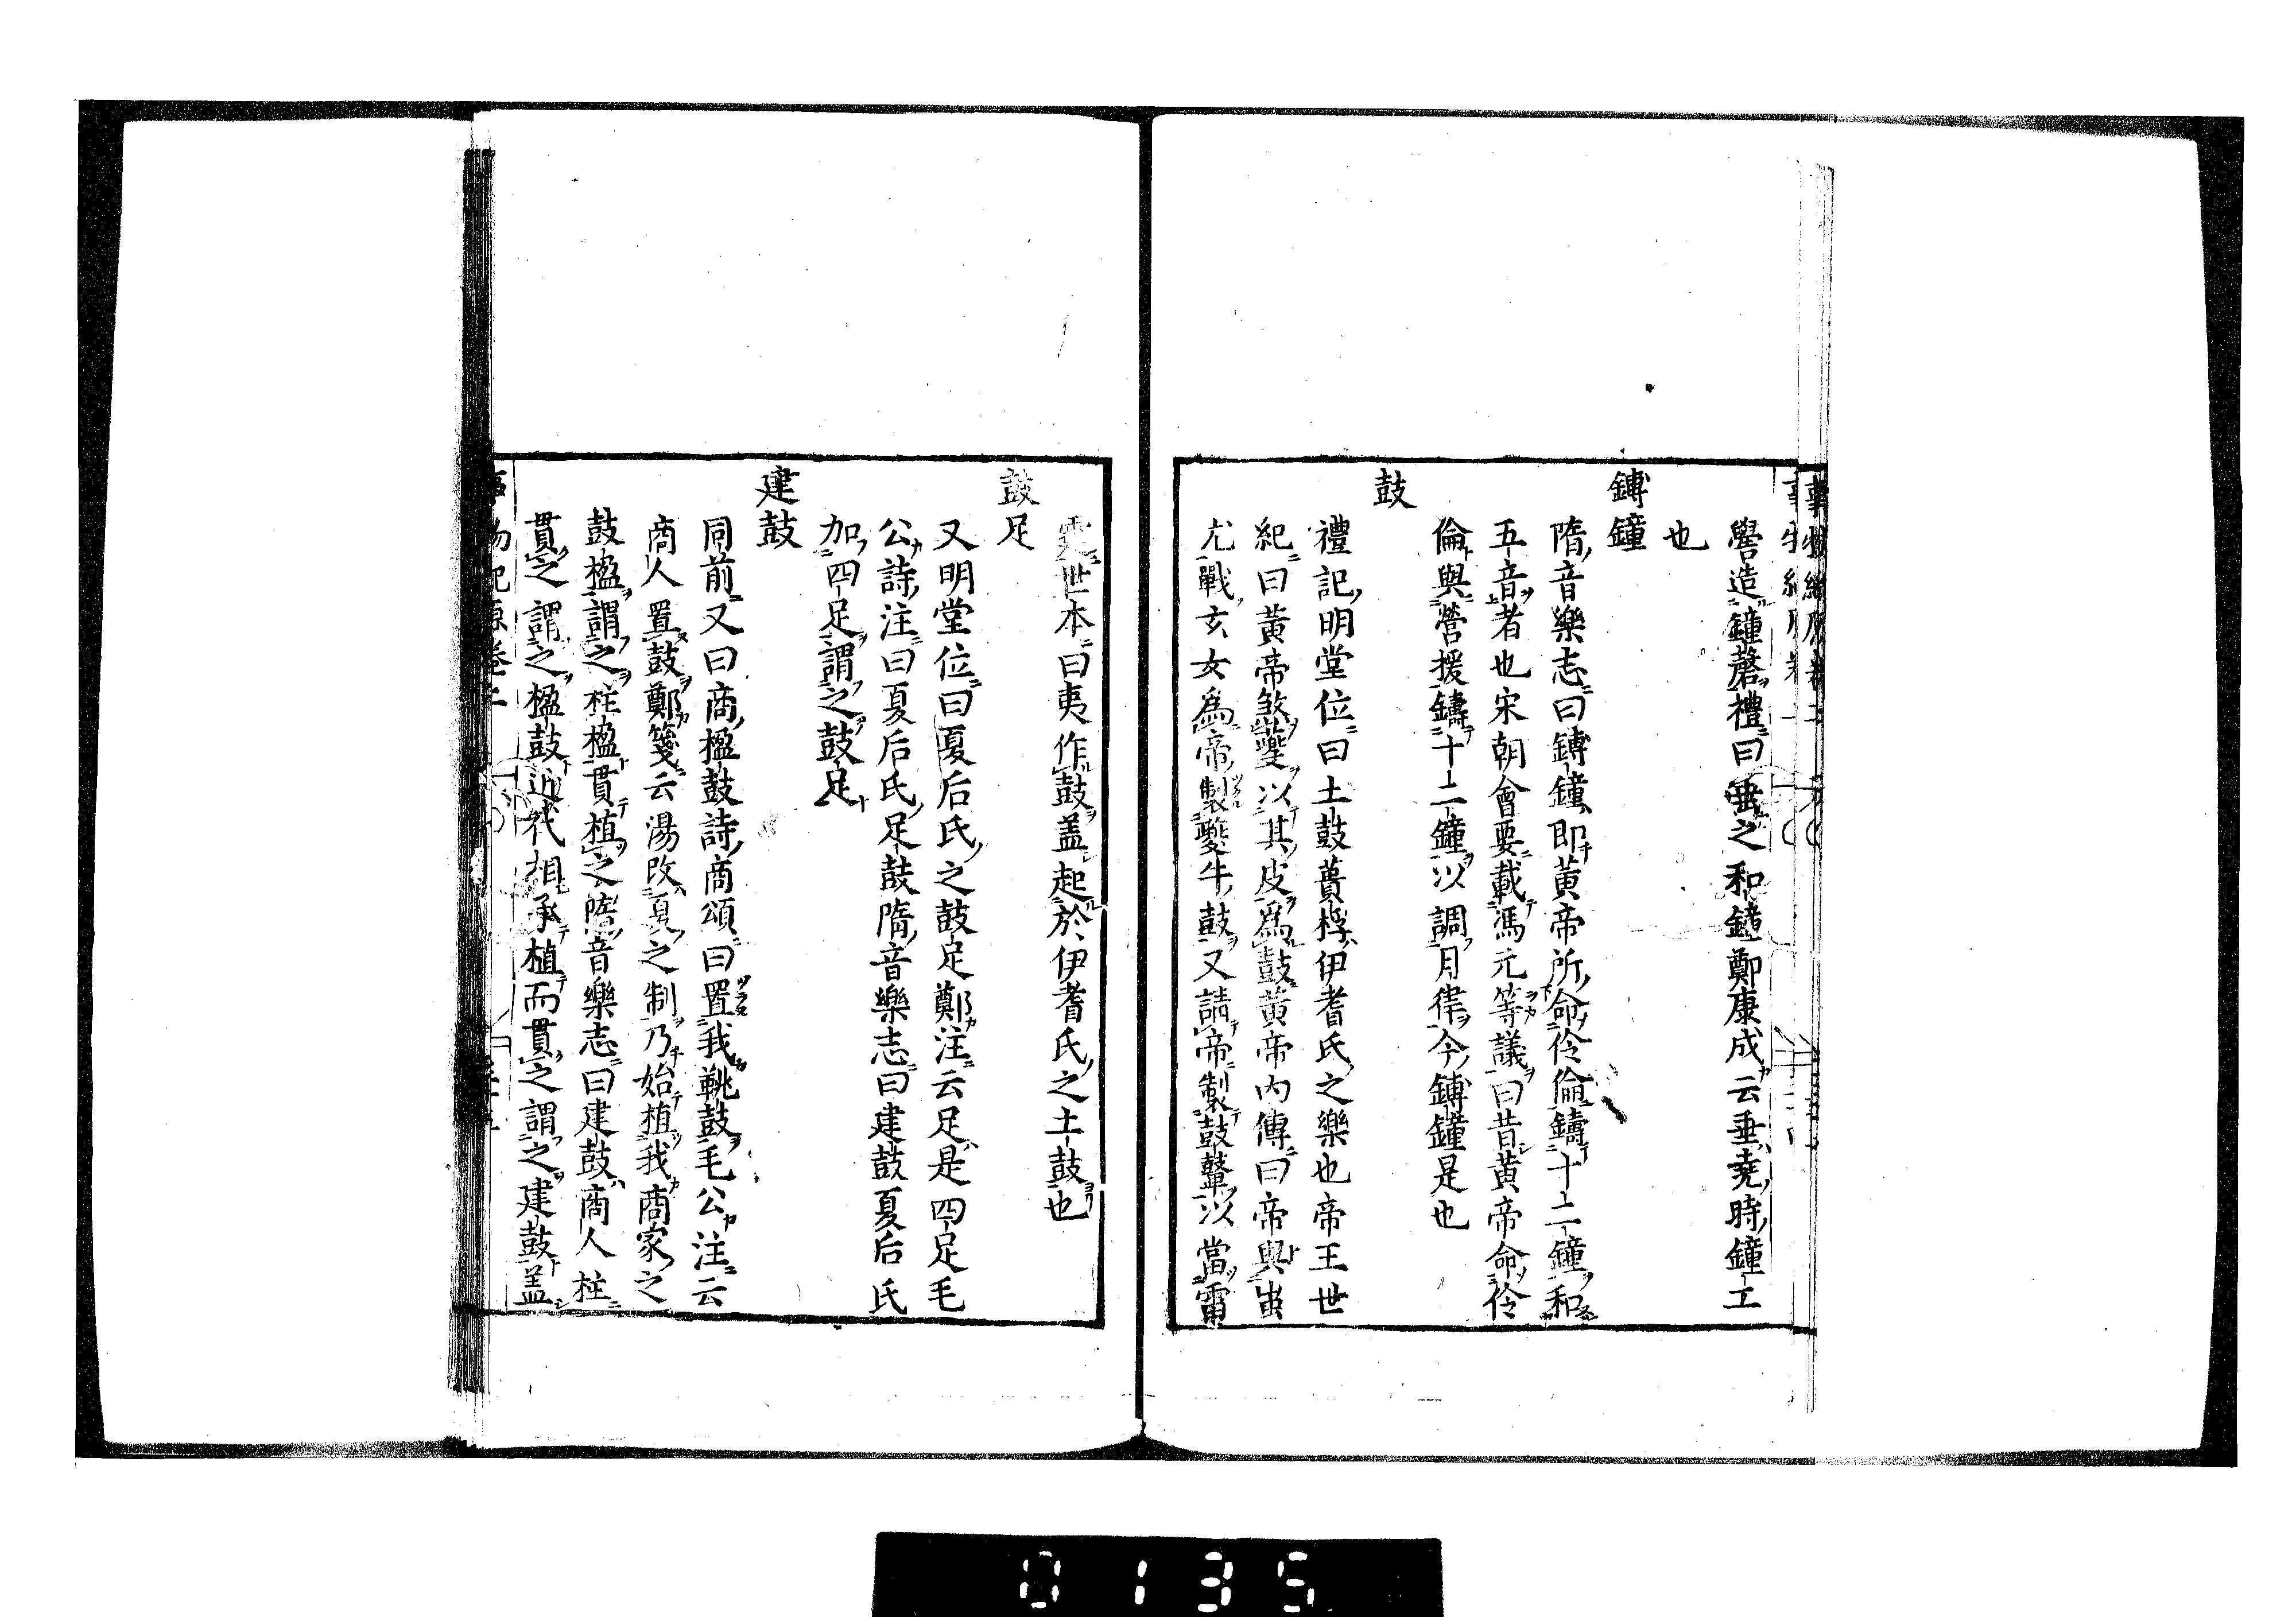 嚳造鐘磬禮曰垂之和鐘鄭康成云垂堯時鐘工
也
鎛鐘
隋音樂志曰鎛鐘即黃帝所命伶倫鑄十二鐘和
五音者也宋朝會要載馮元等議曰昔黃帝命伶
倫與營援鑄十二鐘以調月律今鎛鐘是也
鼓
禮記明堂位曰土鼓蕢桴伊耆氏之樂也帝王世
紀曰黃帝煞夔以其皮爲鼓黃帝內傳曰帝與蚩
尤戰玄女爲帝製夔牛鼓又請帝製鼓鼙以當雷
霆世本曰夷作鼓盖起於伊耆氏之土鼓也
鼓足
又明堂位曰夏后氏之鼓足鄭注云足是四足毛
公詩注曰夏后氏足鼓隋音樂志曰建鼓夏后氏
加四足謂之鼓足
建鼓
同前又曰商楹鼓詩商頌曰置我鞉鼓毛公注云
商人置鼓鄭箋云湯改夏之制乃始植我商家之
鼓楹謂之柱楹貫植之隋音樂志曰建鼓商人柱
貫之謂之楹鼓近代相承植而貫之謂之建鼓盖
0135